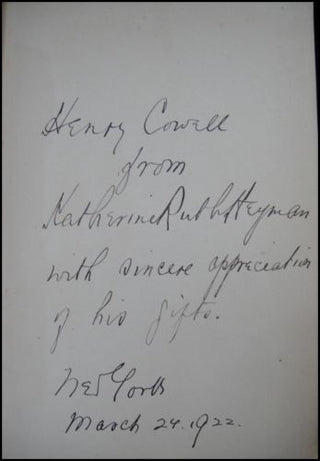 Henry Cowell
from
Katherine Ruth Heyman
with sincere appreciation
of his gifts.
New York
March 24. 1922.